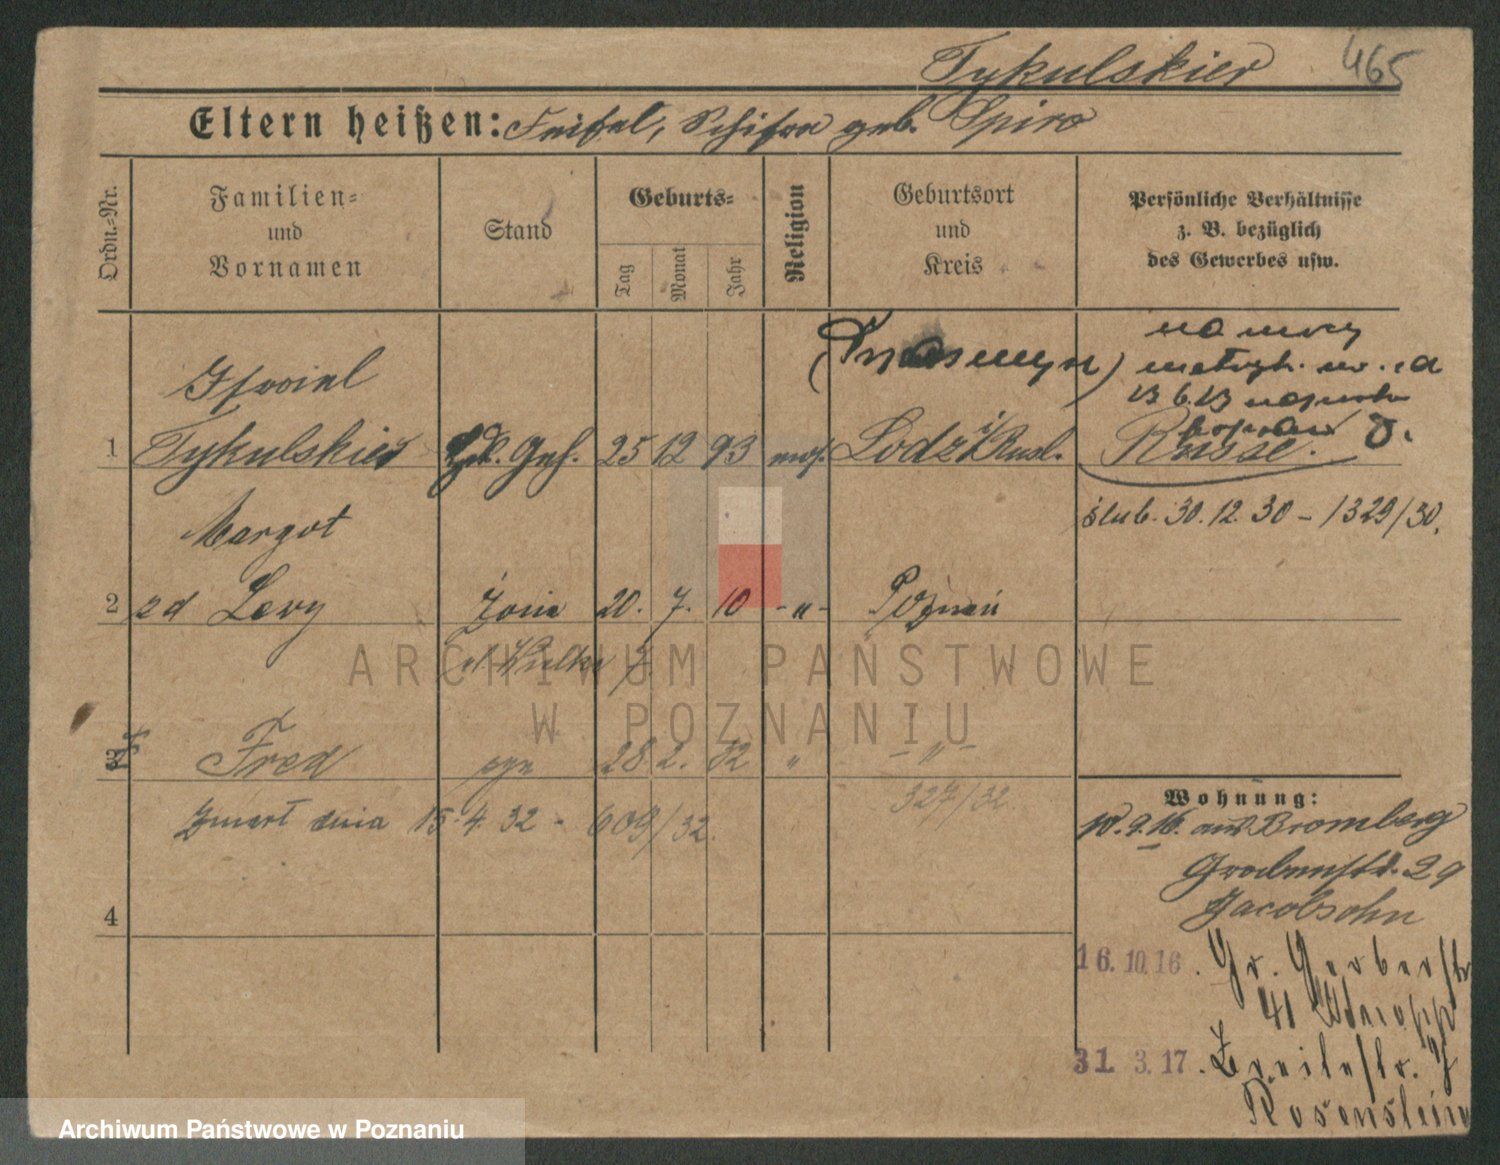 Tykulskier 465
Eltern heißen: Feifel, Schifra geb. Spiro
Ordn.-Nr.
Familien-
und
Vornamen
Stand
Geburts-
Tag
Monat
Jahr
Religion
Geburtsort
und
Kreis
Persönliche Verhältnisse
z. B. bezüglich
des Gewerbes usw.
na mocy
metryk.
13 6 13
1
Isroiel
Tykulskier
25 12 93 mos. Lodz i/Russl.
Russe.
ślub. 30.12.30 – 1329/30.
2
Margot
zd Levy żona 20. 7. 10 -"- Poznań
ul. Wielka 7
3
Fred syn 28 2. 32 " -"-
Zmarł dnia 15.4.32 - 609/32.
327/32.
4
Wohnung:
10.9.16. aus Bromberg
Grabenstr. 29
Jacobsohn
16.10.16. Gr. Gerberstr
41
31. 3. 17. Breitestr. 7
Rosenstein
ARCHIWUM PAŃSTWOWE
W POZNANIU
Archiwum Państwowe w Poznaniu